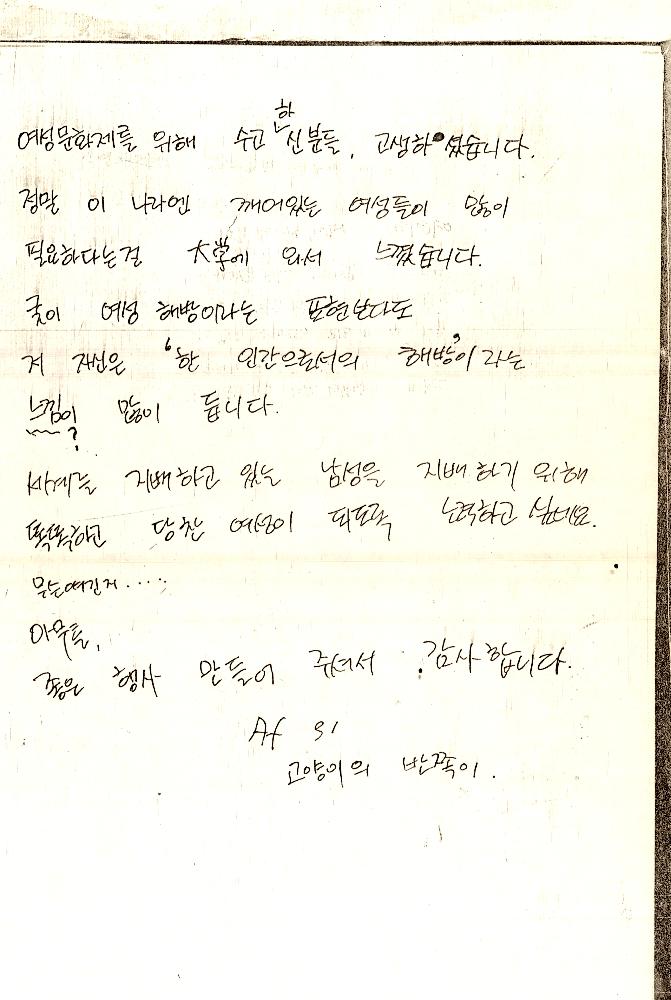 여성문화제를 위해 수고하신분들, 고생하셨습니다.
정말 이 나라엔 깨어있는 여성들이 많이
필요하다는걸 大学에 와서 느꼈습니다.
굳이 여성 해방이라는 표현보다도
저 자신은 '한 인간으로서의 해방'이라는
느낌이 많이 듭니다.
?
세계를 지배하고 있는 남성을 지배하기 위해
똑똑하고 당찬 여성이 되도록 노력하고 싶네요.
무슨얘긴지.....
아무튼,
좋은 행사 만들어 주셔서 감사합니다.
고양이의 반쪽이.